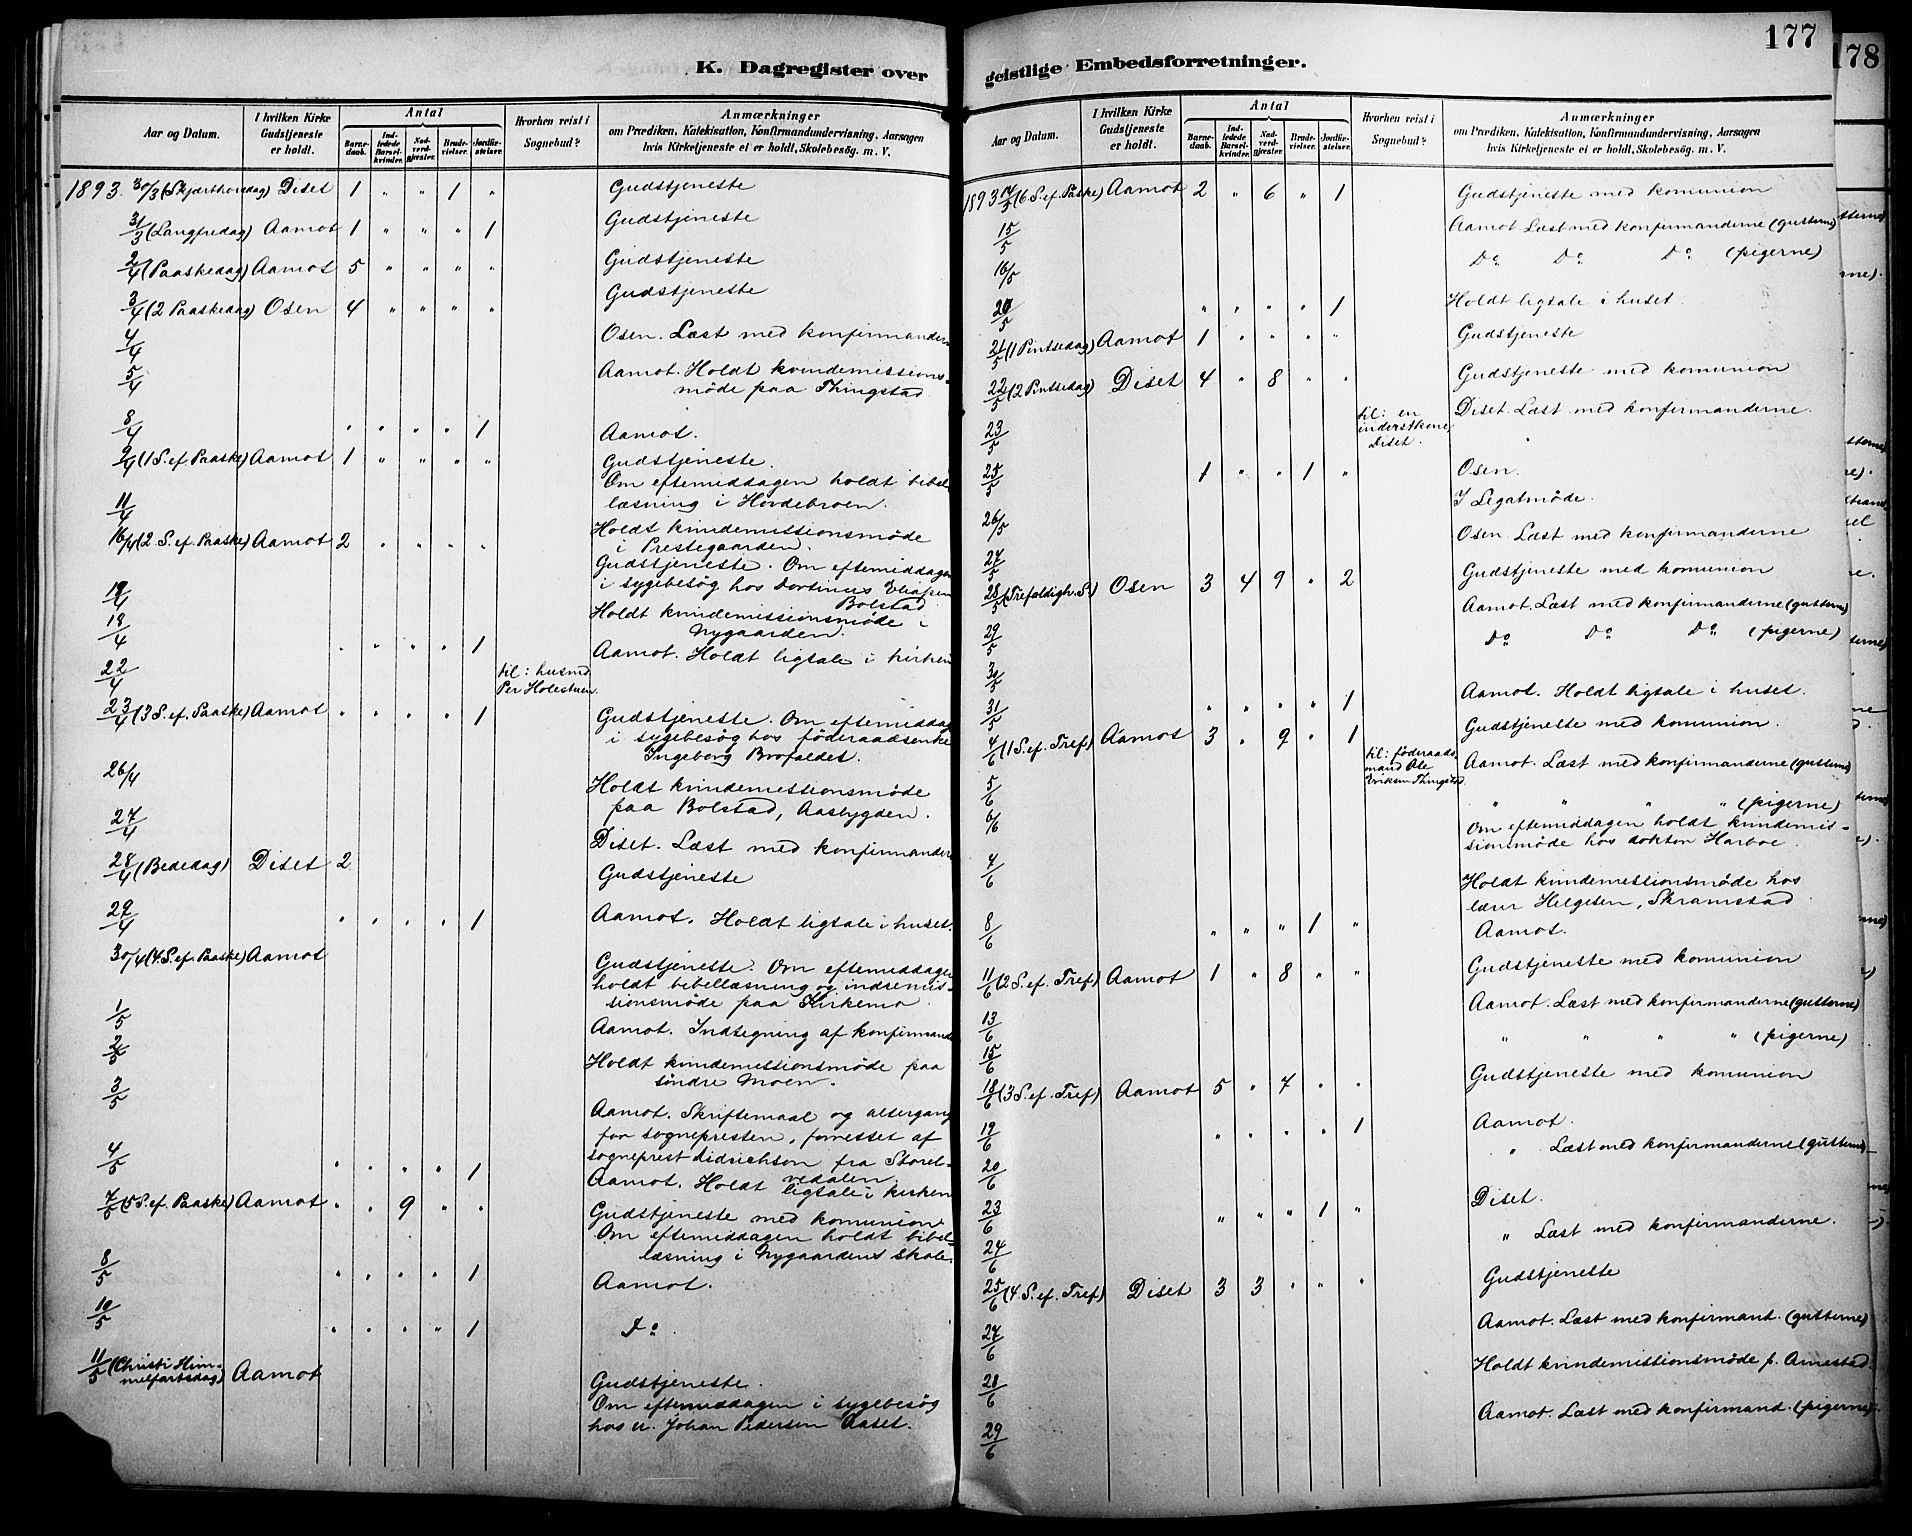 K. Dagregister over
Aar og Datum. I hvilken Kirke Gudstjeneste er holdt. Antal Barne-daab. Ind-ledede Barsel-kvinder. Nad-verd-gjæster. Brude-vielser. Jordfæ-stelser. Hvorhen reist i Sognebud? Anmærkninger
om Prædiken, Katekisation, Konfirmandundervisning, Aarsagen
hvis Kirketjeneste ei er holdt, Skolebesøg. m. V.
1893. 30/3 (Skjærthorsdag) Diset 1 " " 1 " Gudstjeneste
31/3 (Langfredag) Aamot 1 " " " 1 Gudstjeneste
2/4 (Paaskedag) Aamot 5 " " " " Gudstjeneste
3/4 (2 Paaskedag) Osen 4 " " " " Gudstjeneste
4/4 Osen. Læst med konfirmandern
5/4 Aamot. Holdt kvindemissions-
møde paa Thingstad
8/4 " " " " 1 Aamot.
9/4 (1 S. ef. Paaske) Aamot 1 " " " " Gudstjeneste.
Om eftemiddagen holdt bibel-
læsning i Hovdebroen.
11/4 Holdt kvindemissionsmøde
i Prestegaarden.
16/4 (2 S. ef. Paaske) Aamot 2 " " " " Gudstjeneste. Om eftemiddagen
i sygebesøg hos Dortinus Eliasen
Bolstad
18/4 Holdt kvindemissionsmøde i
Nygaarden.
22/4 " " " " 1 til: husmd. Per Holestuen. Aamot. Holdt ligtale i kirken
23/4 (3 S. ef. Paaske) Aamot " " " " 1 Gudstjeneste. Om eftemiddag
i sygebesøg hos føderaadsenke
Ingeborg Brofaldet.
26/4 Holdt kvindemissionsmøde
paa Bolstad, Aasbygden.
27/4 Diset. Læst med konfirmander
28/4 (Bededag) Diset 2 Gudstjeneste
29/4 " " " " 1 Aamot. Holdt ligtale i huset.
30/4 (4. S. ef. Paaske) Aamot Gudstjeneste. Om eftemiddagen
holdt bibellæsning og indremis-
sionsmøde paa Kirkemo.
1/5 Aamot. Indtegning af konfirmand
2/5 Holdt kvindemissionsmøde paa
søndre Moen.
3/5 Aamot. Skriftemaal og altergang
for sognepresten, forrettet af
sogneprest Didrichson fra Storel-
vedalen.
4/5 " " " " 1 Aamot. Holdt ligtale i kirken
7/5 (5 S. ef. Paaske) Aamot " " 9 " " Gudstjeneste med komunion
Om eftemiddagen holdt bibel-
læsning i Nygaardens skole.
8/5 " " " " 1 Aamot.
10/5 " " " " 1 Do.
11/5 (Christi Him-melfartsdag) Aamot Gudstjeneste.
Om eftemiddagen i sygebesøg
hos u. Johan Pedersen Aaset.
177
178
geistlige Embedsforretninger.
Aar og Datum. I hvilken Kirke Gudstjeneste er holdt. Antal Barne-daab. Ind-ledede Barsel-kvinder. Nad-verd-gjæster. Brude-vielser. Jordfæ-stelser. Hvorhen reist i Sognebud? Anmærkninger
om Prædiken, Katekisation, Konfirmandundervisning, Aarsagen
hvis Kirketjeneste ei er holdt, Skolebesøg. m. V.
1893 14/5 (6 S. ef. Paaske) Aamot 2 " 6 " 1 Gudstjeneste med komunion
15/5 Aamot Læst med konfirmanderne (gutterne)
16/5 Do Do Do (pigerne)
20/5 " " " " 1 Holdt ligtale i huset.
21/5 (1 Pintsedag) Aamot 1 " " " " Gudstjeneste
22/5 (2 Pintsedag) Diset 4 " 8 " " Gudstjeneste med komunion
23/5 Diset. Læst med konfirmanderne.
25/5 1 " " 1 " Osen.
26/5 I Legatmøde.
27/5 Osen Læst med konfirmanderne
28/5 (Trefoldigh. S.) Osen 3 4 9 " 2 Gudstjeneste med komunion
29/5 Aamot. Læst med konfirmanderne (gutterne)
30/5 Do Do Do (pigerne)
31/5 " " " " 1 Aamot. Holdt ligtale i huset.
4/6 (1 S. ef. Tref) Aamot 3 " 9 " 1 Gudstjeneste med komunion.
5/6 til: føderaads-mand Ole Eriksen Thingstad Aamot. Læst med konfirmanderne (gutterne)
6/6 " " " " (pigerne)
Om eftemiddagen holdt kvindemis-
sionsmøde hos doktor Harboe.
7/6 Holdt kvindemissionsmøde hos
lærer Helgesen, Skramstad
8/6 " " " 1 " Aamot.
11/6 (2 S. ef. Tref) Aamot 1 " 8 " " Gudstjeneste med komunion
13/6 Aamot. Læst med konfirmanderne (gutterne)
15/6 " " " " (pigerne)
18/6 (3 S. ef. Tref) Aamot 5 " 7 " " Gudstjeneste med komunion
19/6 " " " " 1 Aamot.
20/6 " Læst med konfirmanderne (gutterne)
23/6 " " " 1 " Diset.
24/6 " Læst med konfirmanderne.
25/6 (4. S. ef. Tref) Diset 3 3 " " " Gudstjeneste
27/6 Aamot. Læst med konfirmand. (gutterne)
28/6 Holdt kvindemissionsmøde p. Arnestad.
29/6 Aamot. Læst med konfirmand. (pigerne)